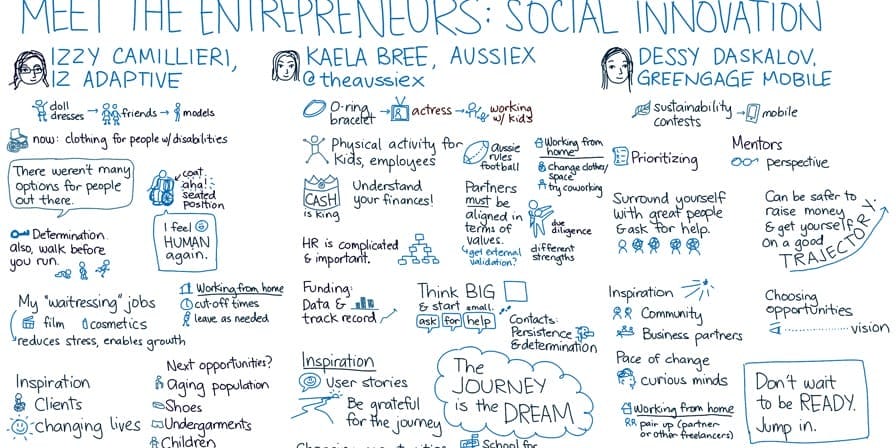 MEET THE ENTREPRENEURS: SOCIAL INNOVATION
IZZY CAMILLIERI,
IZ ADAPTIVE
doll
dresses → friends → models
now: clothing for people w/ disabilities
There weren't many
options for people
out there.
coat
aha!
seated
position
I feel
HUMAN
again.
Determination.
also, walk before
you run.
My "waitressing" jobs
film cosmetics
reduces stress, enables growth
Working from home
cut-off times
leave as needed
Inspiration
Clients
changing lives
Next opportunities?
Aging population
Shoes
Undergarments
Children
KAELA BREE, AUSSIEX
@theaussiex
O-ring
bracelet → actress → working
w/ kids
Physical activity for
kids, employees
Aussie
rules
football
Working from
home
change clothes/
space
try coworking
CASH
is king
Understand
your finances!
Partners
must be
aligned in
terms of
values.
get external
validation?
due
diligence
different
strengths
HR is complicated
& important.
Funding:
Data &
track record
Think BIG
& start small.
ask for help
Contacts:
Persistence
& determination
Inspiration
User stories
Be grateful
for the journey
The
JOURNEY
is the DREAM
School for
DESSY DASKALOV,
GREENGAGE MOBILE
sustainability
contests → mobile
Prioritizing
Mentors
perspective
Surround yourself
with great people
& ask for help.
Can be safer to
raise money
& get yourself
on a good
TRAJECTORY.
Inspiration
Community
Business partners
Choosing
opportunities
vision
Pace of change
curious minds
Working from home
pair up (partner
or other freelancers)
Don't wait
to be READY.
Jump in.